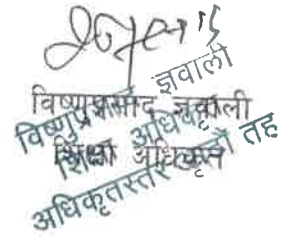 विष्णुप्रसाद ज्ञवाली
शिक्षा अधिकृत
विष्णुप्रसाद ज्ञवाली
शिक्षा अधिकृत
अधिकृतस्तर तह